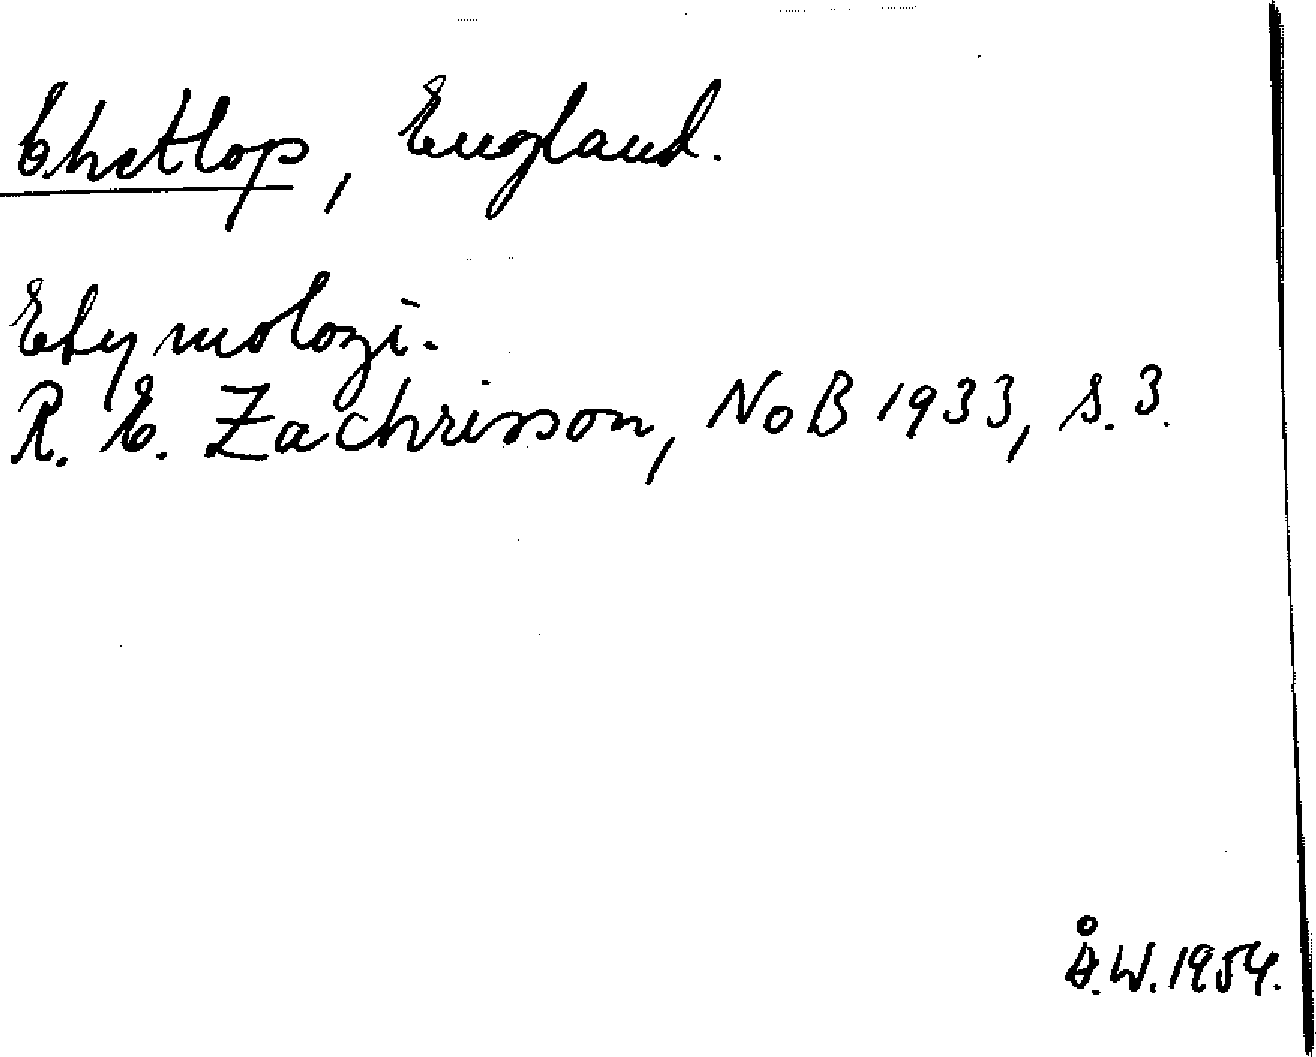 Chetlop, England.
Etymologi.
R. E. Zachrisson, NoB 1933, s. 3.
Å.W. 1954.